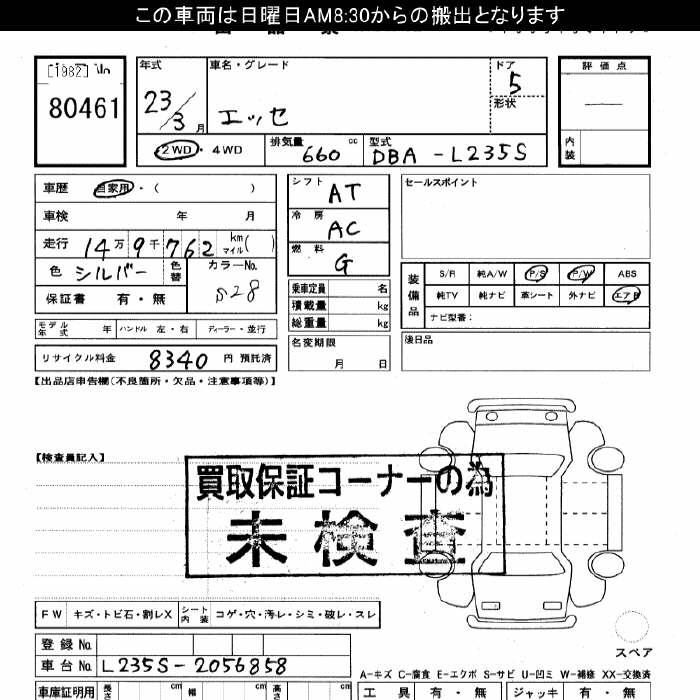 この車両は日曜日AM8:30からの搬出となります
[1982]
80461
年式
23/3 月
車名・グレード
エッセ
ドア
5
形状
評価点
内装
2WD・4WD
排気量 660 cc
型式 DBA-L235S
車歴 自家用・( )
車検 年 月
走行 14万9千762 km マイル( )
色 シルバー 色替
カラーNo. S28
保証書 有・無
シフト AT
冷房 AC
燃料 G
乗車定員 名
積載量 kg
総重量 kg
セールスポイント
装備品
S/R 純A/W P/S P/W ABS
純TV 純ナビ 革シート 外ナビ エアB
ナビ型番:
モデル年式 年 ハンドル 左・右 ディーラー・並行
名変期限 月 日
後日品
リサイクル料金 8340 円 預託済
【出品店申告欄(不良箇所・欠品・注意事項等)】
【検査員記入】
買取保証コーナーの為
未検査
FW キズ・トビ石・割レX シート内装 コゲ・穴・汚レ・シミ・破レ・スレ
スペア
登録No.
車台No. L235S-2056858
A-キズ C-腐食 E-エクボ S-サビ U-凹ミ W-補修 XX-交換済
車庫証明用 長さ cm 幅 cm 高さ cm
工具 有・無 ジャッキ 有・無